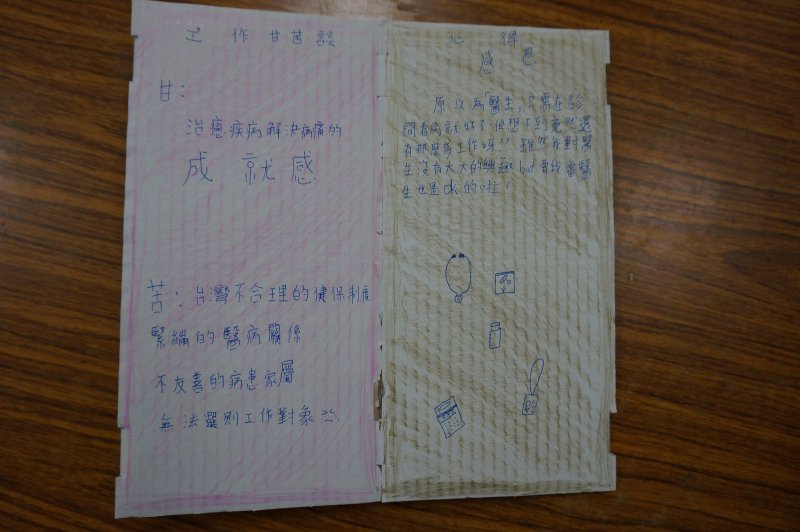 工作甘苦談
甘:
治癒疾病解決病痛的
成就感
苦:台灣不合理的健保制度
緊繃的醫病關係
不友善的病患家屬
無法選則工作對象
心得
感想
原以為「醫生」只需在診
間看病就好不但想不到竟然還
有那麼多工作呀!? 雖然我對醫
生沒有太大的興趣but要我當醫
生也是ok的啦!